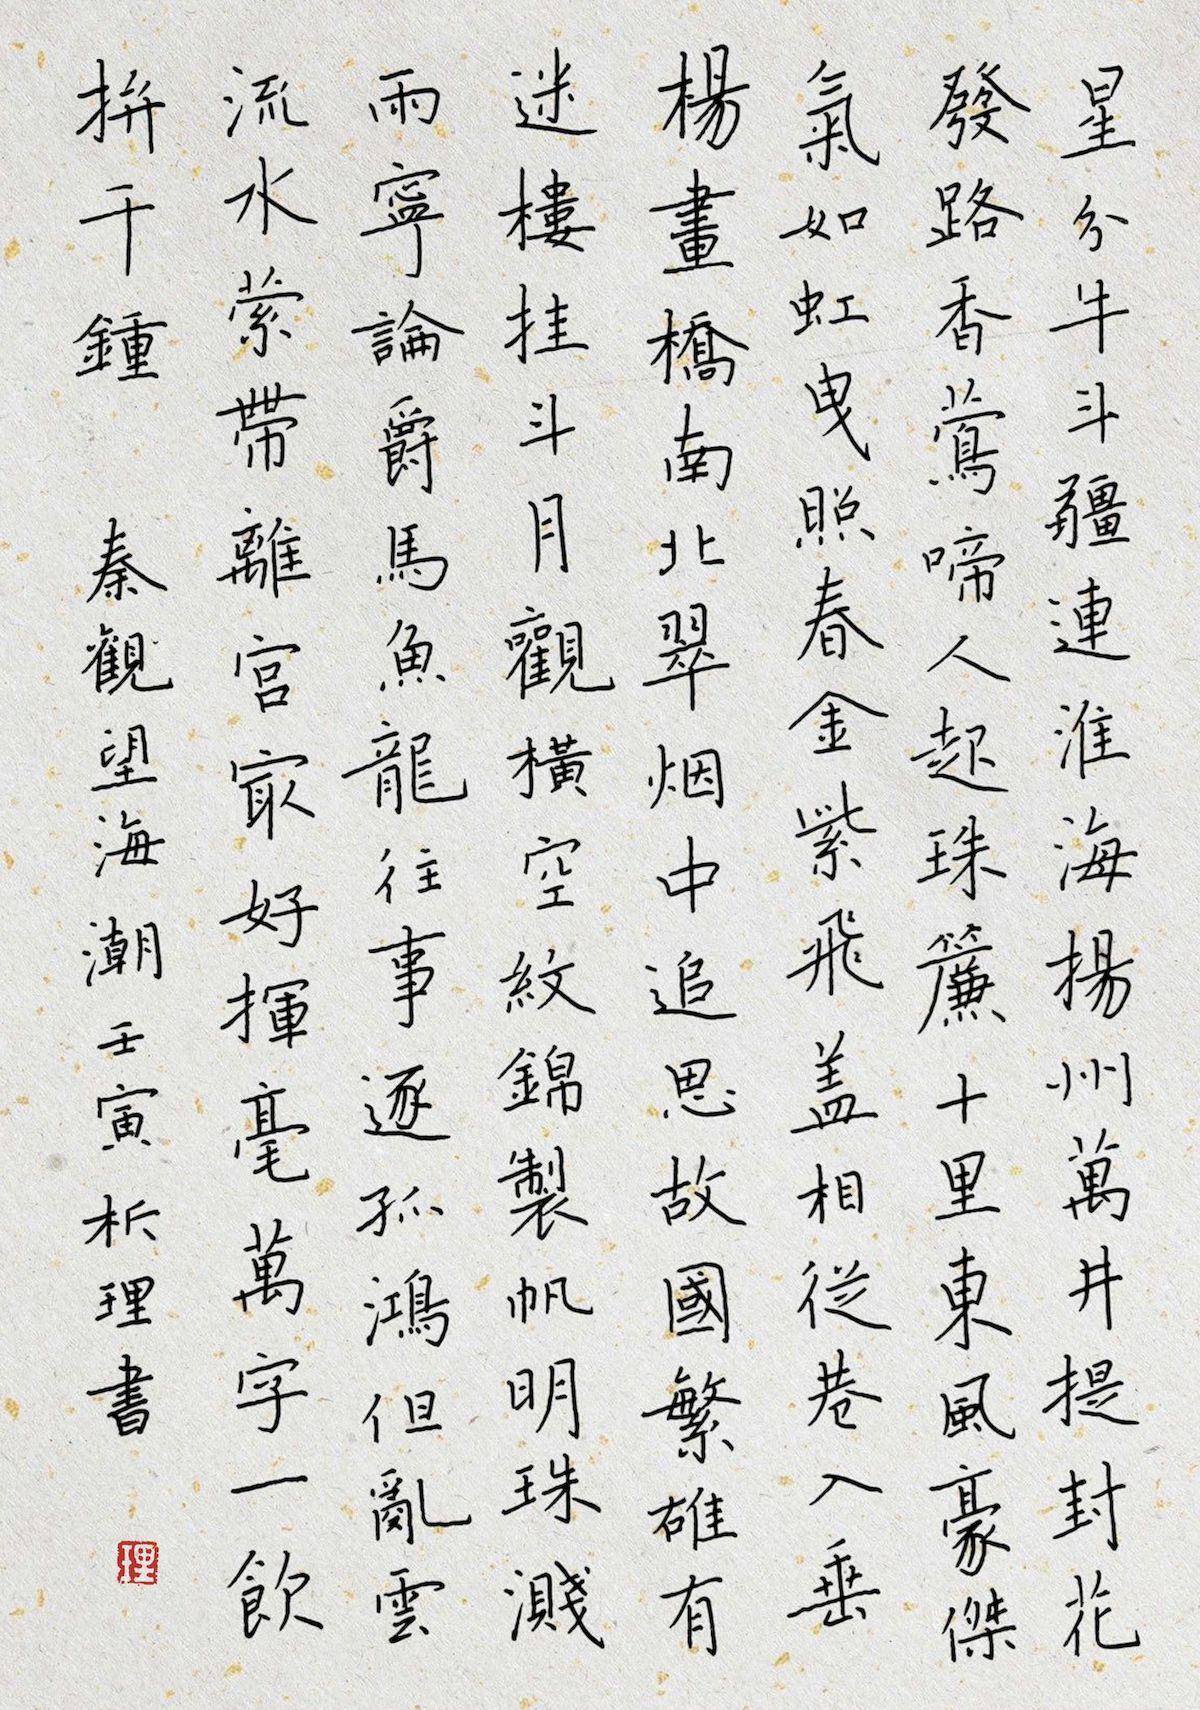 星分牛斗疆連淮海揚州萬井提封花
發路香鶯啼人起珠簾十里東風豪傑
氣如虹曳照春金紫飛蓋相從巷入垂
楊畫橋南北翠烟中追思故國繁雄有
迷樓挂斗月觀橫空紋錦製帆明珠濺
雨寧論爵馬魚龍往事逐孤鴻但亂雲
流水縈帶離宮冣好揮毫萬字一飲
拚千鍾 秦觀望海潮 壬寅析理書
理